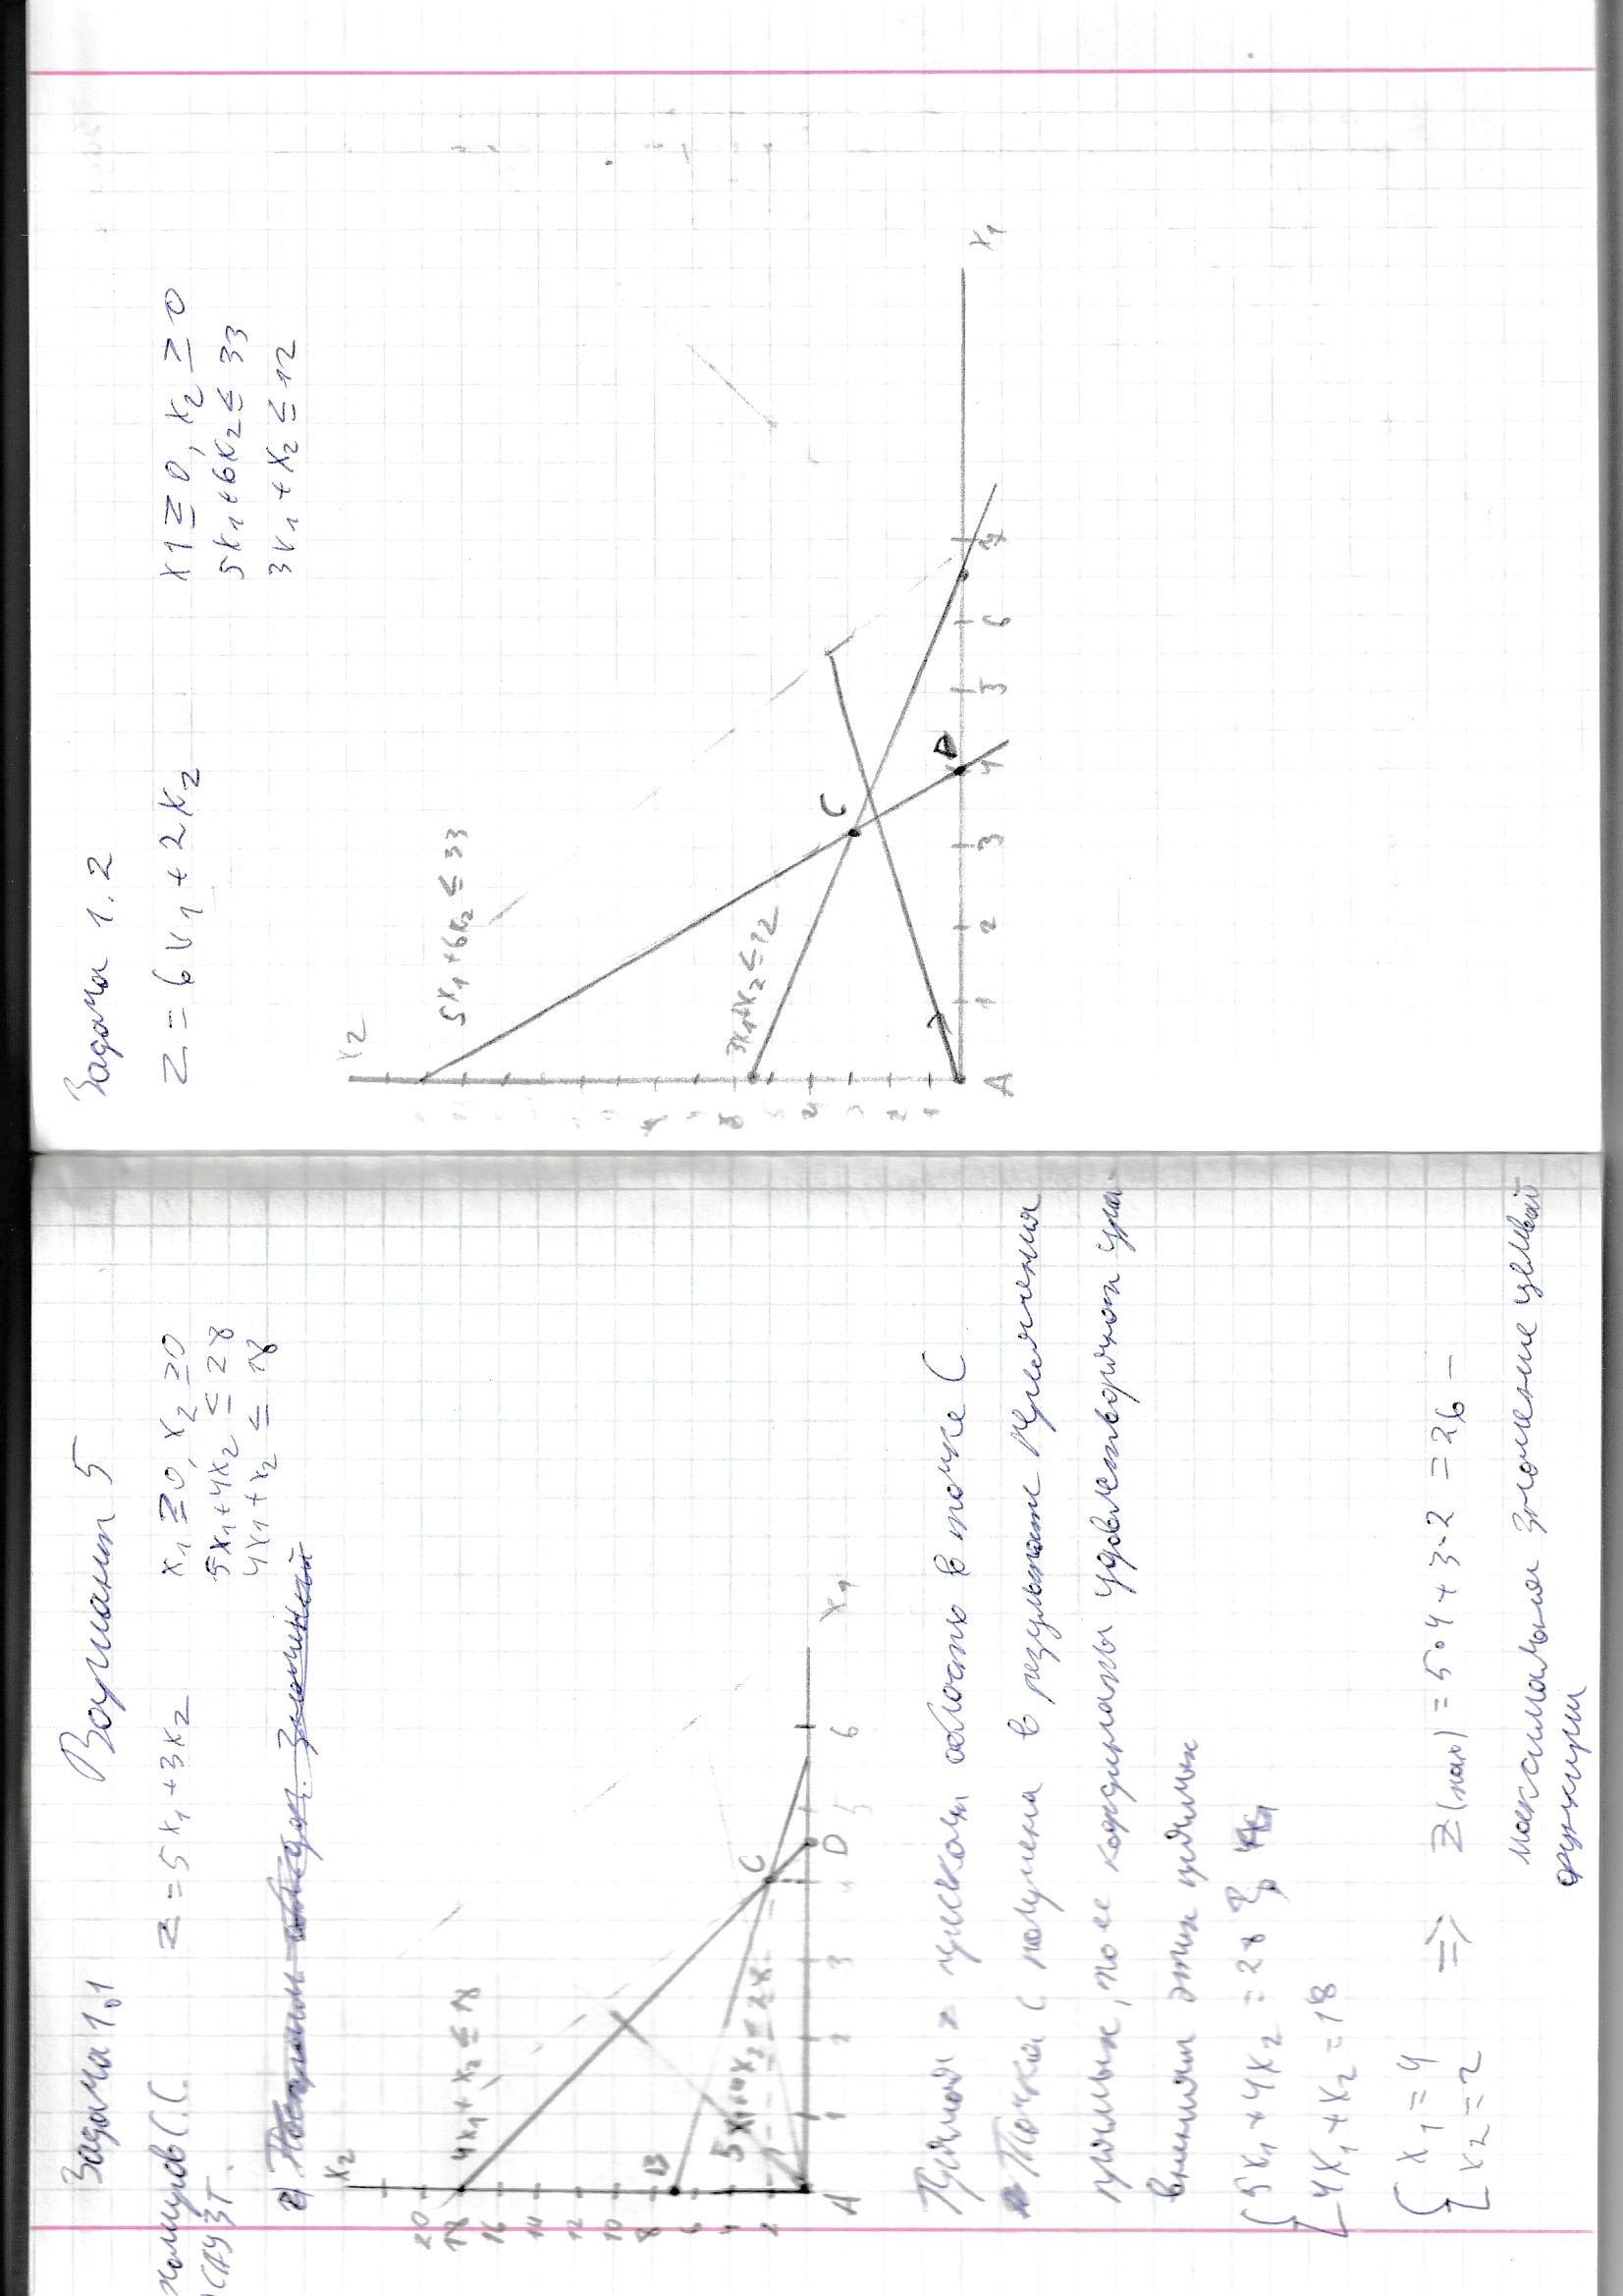 Задача 1.1 Вариант 5
С.С. z = 5x₁ + 3x₂ x₁ ≥ 0, x₂ ≥ 0
5x₁ + 4x₂ ≤ 28
4x₁ + x₂ ≤ 18
x₂
20
18 4x₁ + x₂ ≤ 18
16
14
12
10
8 B
6
4 5x₁ + 4x₂ ≤ 28
2 C
A 1 2 3 4 D 5 6 x₁
Прямая z область в точке C
Точка C получена в результате пересячения
прямых, то ее координаты удовлетворяют ура-
внениям этих прямых
5x₁ + 4x₂ = 28
4x₁ + x₂ = 18
x₁ = 4
x₂ = 2
=> z(max) = 5·4 + 3·2 = 26 –
максимальное значение целевой
функции
Задача 1.2
z = 6x₁ + 2x₂ x1 ≥ 0, x₂ ≥ 0
5x₁ + 6x₂ ≤ 33
3x₁ + x₂ ≤ 12
x₂
5x₁ + 6x₂ ≤ 33
3x₁ + x₂ ≤ 12
C
D
4
3
2
1
A 1 2 3 4 5 6 7 x₁